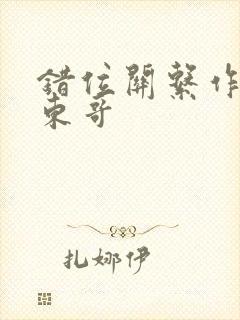 錯位關繫作
東哥
扎娜伊